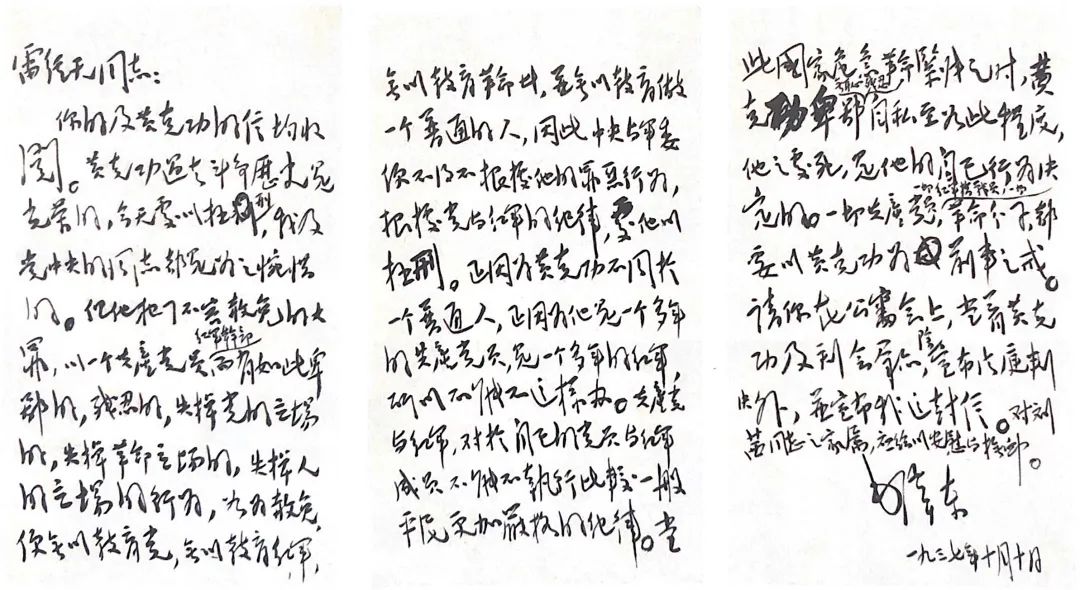 雷经天同志：
你的及黄克功的信均收
阅。黄克功过去斗争歷史是
光荣的，今天处以极刑，我及
党中央的同志都是为之惋惜
的。但他犯了不容赦免的大
红军幹部
罪，以一个共產党员而有如此卑
鄙的，残忍的，失掉党的立場
的，失掉革命立場的，失掉人
的立場的行为，如为赦免，
便无以教育党，无以教育红军，
无以教育革命者，並无以教育做
一个普通的人，因此中央与军委
便不得不根据他的罪恶行为，
根据党与红军的纪律，处他以
极刑。正因为黄克功不同於
一个普通人，正因为他是一个多年
的共產党员，是一个多年的红军，
所以不能不这样办。共產党
与红军，对於自己的党员与红军
成员不能不執行比较一般
平民更加嚴格的纪律。当
此國家危急革命緊张之时，黄
无耻残忍
克功卑鄙自私至如此程度，
他之处死，是他的自己行为决
一切红军指战员，一切
定的。一切共產党员，革命分子，都
要以黄克功为前车之戒。
请你在公審会上，当着黄克
功及到会群众，除宣布法庭判
决外，並宣布我这封信。对刘
茜同志之家属，应给以安慰与抚卹。
毛泽东
一九三七年十月十日